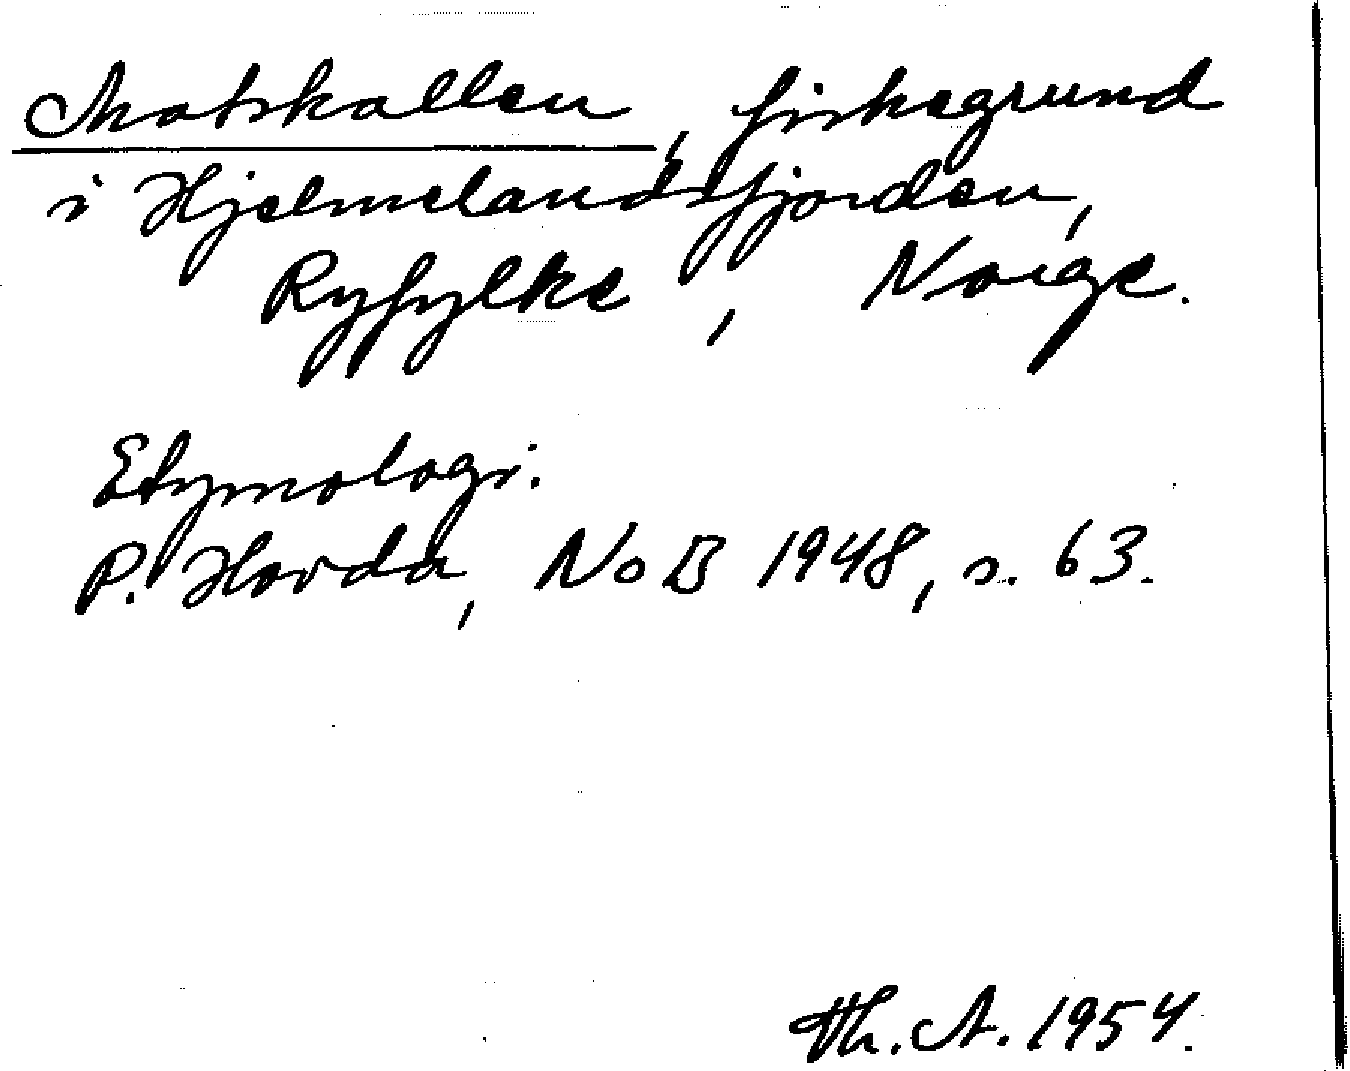 Matskallen, fiskegrund
i Hjelmelandsfjorden,
Ryfylke, Norge.
Etymologi.
P. Hovda, NoB 1948, s. 63.
Th. A. 1954.